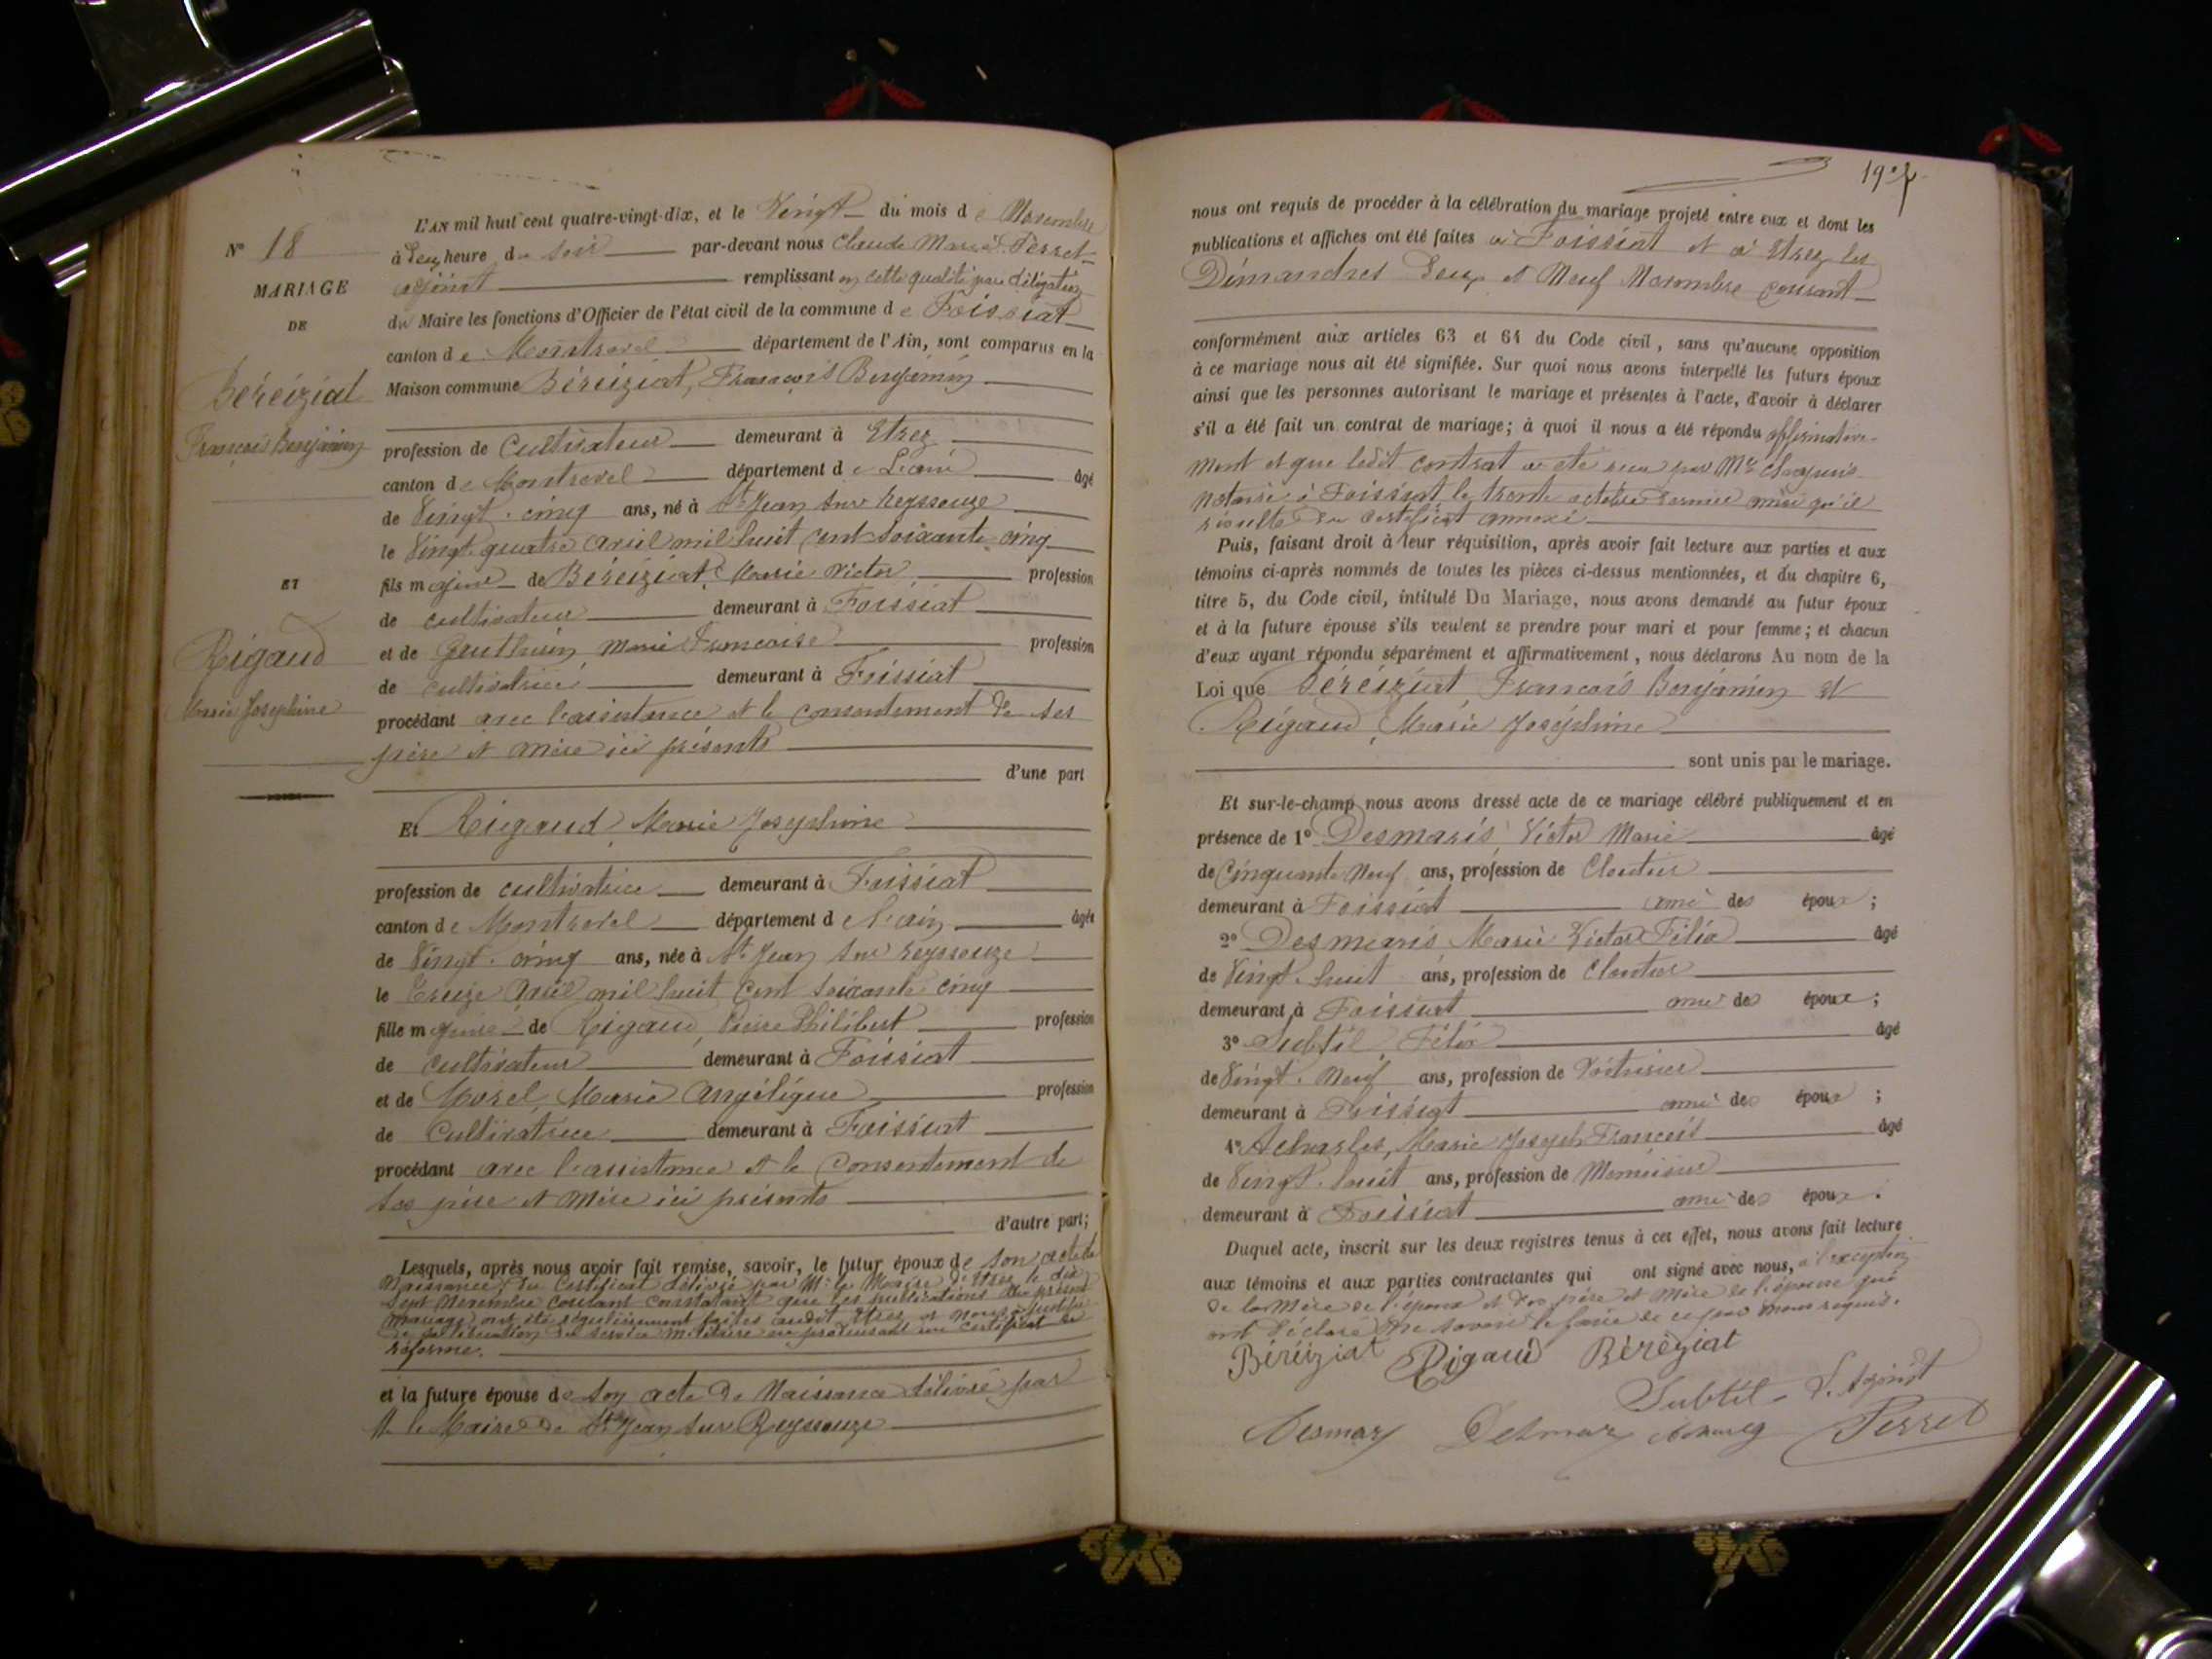 N° 18
MARIAGE
DE
Béréiziat
François Benjamin
ET
Rigaud
Marie Joséphine
L'AN mil huit cent quatre-vingt-dix, et le Vingt du mois de Novembre
à Deux heure du soir par-devant nous Claude Marie Perret
adjoint remplissant en cette qualité par délégation
du Maire les fonctions d'Officier de l'état civil de la commune de Foissiat
canton de Montrevel département de l'Ain, sont comparus en la
Maison commune Béréiziat, François Benjamin
profession de Cultivateur demeurant à Etrez
canton de Montrevel département de L'ain âgé
de Vingt-cinq ans, né à St Jean sur Reyssouze
le Vingt quatre avril mil huit cent soixante cinq
fils majeur de Béréiziat, Marie Victor profession
de cultivateur demeurant à Foissiat
et de Genthieu Marie Francoise profession
de cultivatrice demeurant à Foissiat
procédant avec l'assistance et le consentement de ses
père et mère ici présents
d'une part
Et Rigaud, Marie Joséphine
profession de cultivatrice demeurant à Foissiat
canton de Montrevel département de l'ain âgée
de Vingt-cinq ans, née à St Jean sur reyssouze
le Treize Avril mil huit Cent soixante cinq
fille majeure de Rigaud, Pierre Philibert profession
de cultivateur demeurant à Foissiat
et de Morel, Marie Angélique profession
de Cultivatrice demeurant à Foissiat
procédant avec l'assistance et le Consentement de
ses père et mère ici présents
d'autre part;
Lesquels, après nous avoir fait remise, savoir, le futur époux de son acte de
Naissance, du Certificat délivré par Mr le Maire d'Etrez le dix
sept Novembre courant constatant que les publications du présent
mariage ont été régulièrement faites audit Etrez et nous a justifié
de sa libération du service militaire en produisant un certificat de
réforme.
et la future épouse de son acte de Naissance délivré par
M. le Maire de St Jean sur Reyssouze
nous ont requis de procéder à la célébration du mariage projeté entre eux et dont les
publications et affiches ont été faites à Foissiat et à Etrez les
Dimanches Deux et Neuf Novembre courant
conformément aux articles 63 et 64 du Code civil, sans qu'aucune opposition
à ce mariage nous ait été signifiée. Sur quoi nous avons interpellé les futurs époux
ainsi que les personnes autorisant le mariage et présentes à l'acte, d'avoir à déclarer
s'il a été fait un contrat de mariage; à quoi il nous a été répondu affirmative-
ment et que ledit contrat a été reçu par Me
notaire à Foissiat le trente octobre dernier ainsi qu'il
résulte du certificat annexé
Puis, faisant droit à leur réquisition, après avoir fait lecture aux parties et aux
témoins ci-après nommés de toutes les pièces ci-dessus mentionnées, et du chapitre 6,
titre 5, du Code civil, intitulé Du Mariage, nous avons demandé au futur époux
et à la future épouse s'ils veulent se prendre pour mari et pour femme; et chacun
d'eux ayant répondu séparément et affirmativement, nous déclarons Au nom de la
Loi que Béréiziat François Benjamin et
Rigaud, Marie Joséphine
sont unis par le mariage.
Et sur-le-champ nous avons dressé acte de ce mariage célébré publiquement et en
présence de 1° Desmaris, Victor Marie âgé
de Cinquante Neuf ans, profession de Cloutier
demeurant à Foissiat ami des époux;
2° Desmaris Marie Victor Félix âgé
de Vingt-huit ans, profession de Cloutier
demeurant à Foissiat ami des époux;
3° Subtil, Félix âgé
de Vingt-Neuf ans, profession de Voiturier
demeurant à Foissiat ami des époux;
4° Acharles, Marie Joseph François âgé
de Vingt-huit ans, profession de Menuisier
demeurant à Foissiat ami des époux.
Duquel acte, inscrit sur les deux registres tenus à cet effet, nous avons fait lecture
aux témoins et aux parties contractantes qui ont signé avec nous, à l'exception
de la Mère de l'époux et des père et Mère de l'épouse qui
ont déclaré ne savoir le faire de ce par nous requis.
Béréiziat Rigaud Béréziat
Subtil L'Adjoint
Desmaris Perret